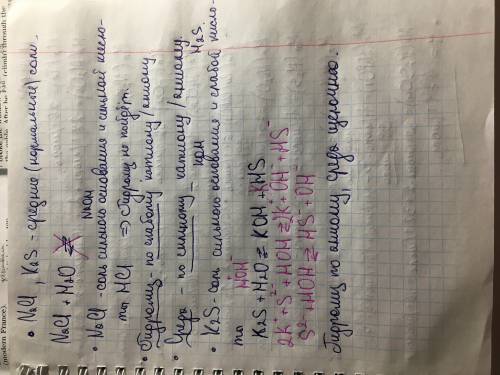 • NaCl, K2S - средние (нормальные) соли.
NaCl + H2O ⇄
NaOH
• NaCl - соль сильного основания и сильной кисло-
ты HCl ⇒ Гидролиз не пойдёт.
• Гидролиз - по слабому катиону / аниону
• Среда - по сильному катиону / аниону.
KOH H2S
• K2S - соль сильного основания и слабой кисло-
ты
HOH
K2S + H2O ⇄ KOH + KHS
2K⁺ + S²⁻ + HOH ⇄ 2K⁺ + OH⁻ + HS⁻
S²⁻ + HOH ⇄ HS⁻ + OH⁻
Гидролиз по аниону, среда щелочная.
(modern France).